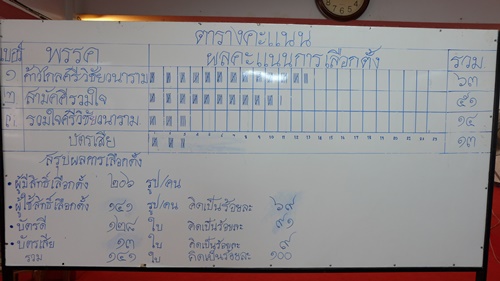 ตารางคะแนน
เบอร์ พรรค ผลคะแนนการเลือกตั้ง รวม
๑ ก้าวไกลศรีวิชัยวนาราม ๖๓
๒ สามัคคีรวมใจ ๕๑
๓ รวมใจศรีวิชัยวนาราม ๑๔
บัตรเสีย ๑๓
สรุปผลการเลือกตั้ง
• ผู้มีสิทธิ์เลือกตั้ง ๒๐๖ รูป/คน
• ผู้ใช้สิทธิ์เลือกตั้ง ๑๔๑ รูป/คน คิดเป็นร้อยละ ๖๙
• บัตรดี ๑๒๘ ใบ คิดเป็นร้อยละ ๙๑
• บัตรเสีย ๑๓ ใบ คิดเป็นร้อยละ ๙
รวม ๑๔๑ ใบ คิดเป็นร้อยละ ๑๐๐